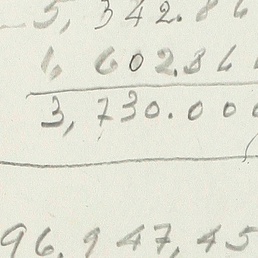 5, 342.86
1, 602.36
3, 730.000
96.947,45